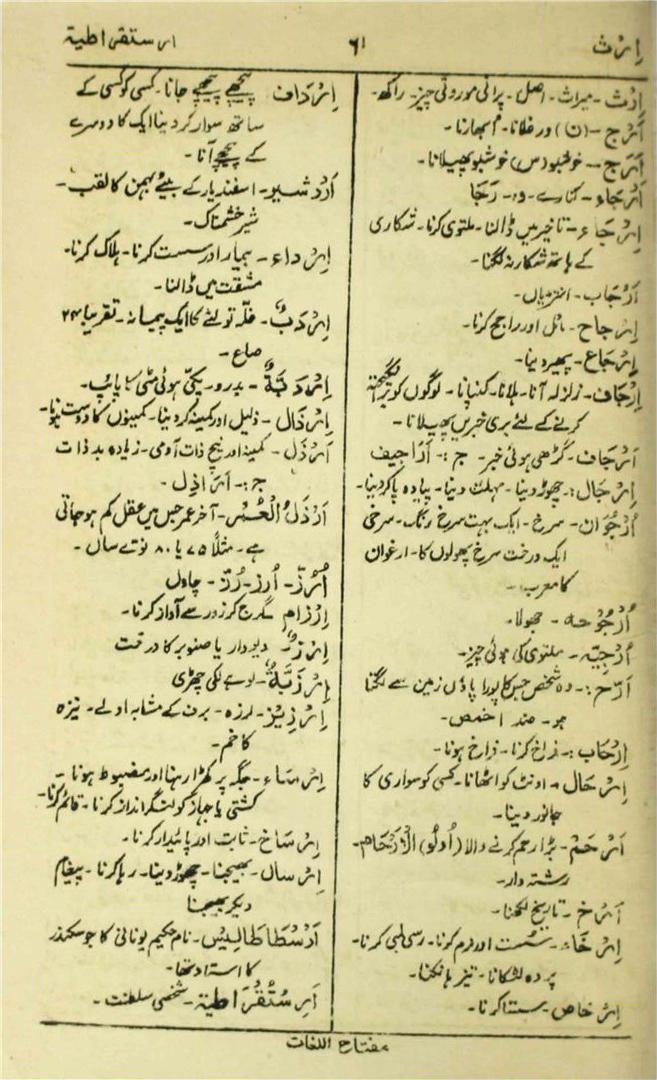 اِرْث
۶۱
ارستقراطیۃ
اِرْث۔ میراث۔ اصل۔ پرانی موروثی چیز۔ راکھ۔
اَرَّج۔ (ن) ورغلانا۔ ابھارنا۔
اَرَج۔ خوشبو (س) خوشبو پھیلانا۔
اَرْجَاء۔ کنارے۔ و۔ رَجَا
اِرْجَاء۔ تاخیر میں ڈالنا۔ ملتوی کرنا۔ شکاری
کے ہاتھ شکار نہ لگنا۔
اَرْجَاب۔ انتڑیاں۔
اِرْجاح۔ مائل اور راجح کرنا۔
اِرْجَاع۔ پھیر دینا۔
اِرْجَاف۔ زلزلہ آنا۔ ہلانا۔ کپکپانا۔ لوگوں کو برانگیختہ
کرنے کے لئے بری خبریں پھیلانا۔
اَرْجَاف۔ گڑھی ہوئی خبر۔ ج :۔ اَرَاجیف
اِرْجَال :۔ چھوڑ دینا۔ مہلت دینا۔ پیادہ پا کر دینا۔
اُرْجُوَان۔ سرخ۔ ایک بہت سرخ رنگ۔ سرخی
ایک درخت سرخ پھولوں کا۔ ارغوان
کا معرب۔
اُرْجُوْحَہ۔ جھولا۔
اُرْجِیَّہ۔ ملتوی کی ہوئی چیز۔
اَرَحّ :۔ وہ شخص جس کا پورا پاؤں زمین سے لگتا
ہو۔ ضد اخمص۔
اِرْحَاب :۔ فراخ کرنا۔ فراخ ہونا۔
اِرْحَال۔ اونٹ کو اٹھانا۔ کسی کو سواری کا
جانور دینا۔
اَرْحَمْ۔ بڑا رحم کرنے والا (اُولُو) الْاَرْحَام۔
رشتہ دار۔
اَرَّخ۔ تاریخ لکھنا۔
اِرْخَاء۔ سست اور نرم کرنا۔ رسی لمبی کرنا۔
پردہ لٹکانا۔ تیز ہانکنا۔
اِرْخاص۔ سستا کرنا۔
اِرْدَاف پیچھے پیچھے جانا۔ کسی کو کسی کے
ساتھ سوار کر دینا ایک کا دوسرے
کے پیچھے آنا۔
اَرْدْشیر۔ اسفندیار کے بیٹے بہمن کا لقب۔
شیر خشمناک۔
اِرْداء۔ بیمار اور سست کرنا۔ ہلاک کرنا۔
مشقت میں ڈالنا۔
اِرْدَبّ۔ غلّہ تولنے کا ایک پیمانہ۔ تقریبا ۲۴
صاع۔
اِرْدَبَّۃٌ۔ بدرو۔ پکی ہوئی مٹی کا پائپ۔
اِرْذَال۔ ذلیل اور کمینہ کر دینا۔ کمینوں کا دوست ہونا۔
اَرْذَل۔ کمینہ اور نیچ ذات آدمی۔ زیادہ بد ذات
ج :۔ اَرَاذِل۔
اَرْذَلُ الْعُمُر۔ آخر عمر جس میں عقل کم ہو جاتی
ہے۔ مثلاً ۷۵ یا ۸۰ نوّے سال۔
اُرُزّ۔ اُرز۔ رُزّ۔ چاول
اِرْزام گرج کر زور سے آواز کرنا۔
اِرْزٌ۔ دیودار یا صنوبر کا درخت
اِرْزَبَّۃٌ۔ لوہے کی چھڑی
اِرْزِیْز۔ لرزہ۔ برف کے مشابہ اولے۔ نیزہ
کا خم۔
اِرْسَاء۔ جگہ پر کھڑا رہنا اور مضبوط ہونا۔
کشتی یا جہاز کو لنگر انداز کرنا۔ قائم کرنا۔
اِرْسَاخ۔ ثابت اور پائیدار کرنا۔
اِرْسال۔ بھیجنا۔ چھوڑ دینا۔ رہا کرنا۔ پیغام
دیکر بھیجنا
اَرْسْطَاطَالِیْس۔ نام حکیم یونانی کا جو سکندر
کا استاد تھا۔
اَرِسْتُقْرَاطِیۃ۔ شخصی سلطنت۔
مفتاح اللغات